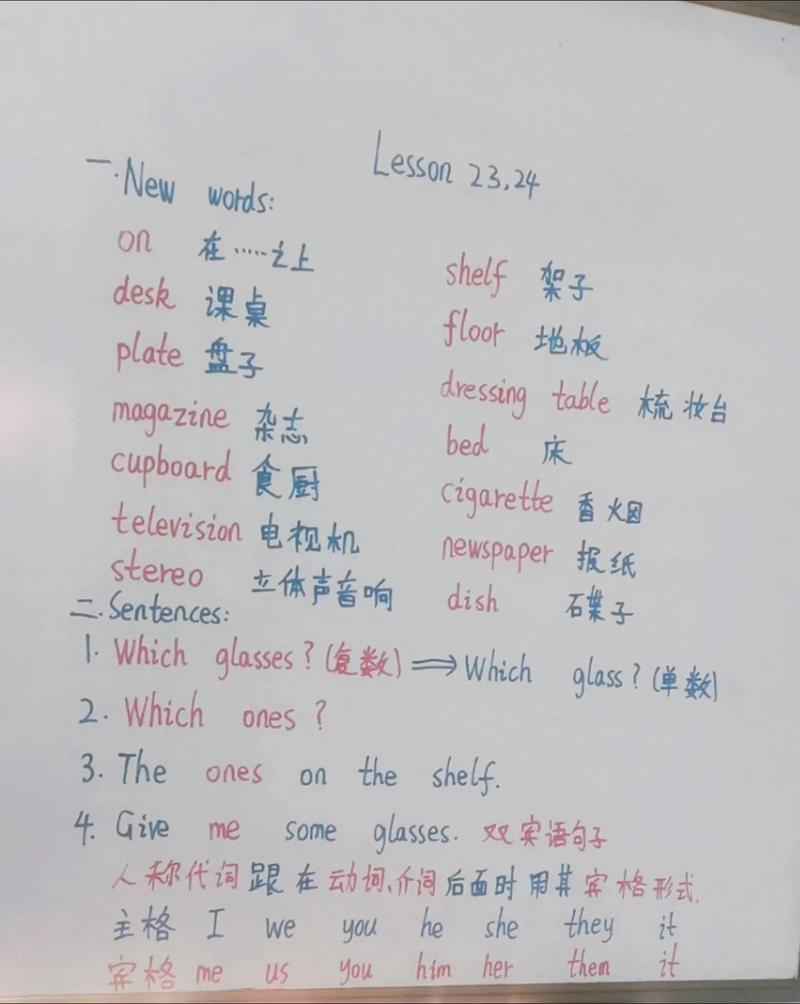 Lesson 23,24
一.New words:
on 在……之上
desk 课桌
plate 盘子
magazine 杂志
cupboard 食厨
television 电视机
stereo 立体声音响
shelf 架子
floor 地板
dressing table 梳妆台
bed 床
cigarette 香火因
newspaper 报纸
dish 碟子
二.Sentences:
1. Which glasses?(复数)⟹Which glass?(单数)
2. Which ones?
3. The ones on the shelf.
4. Give me some glasses. 双宾语句子
人称代词跟在动词、介词后面时用其宾格形式.
主格 I we you he she they it
宾格 me us you him her them it